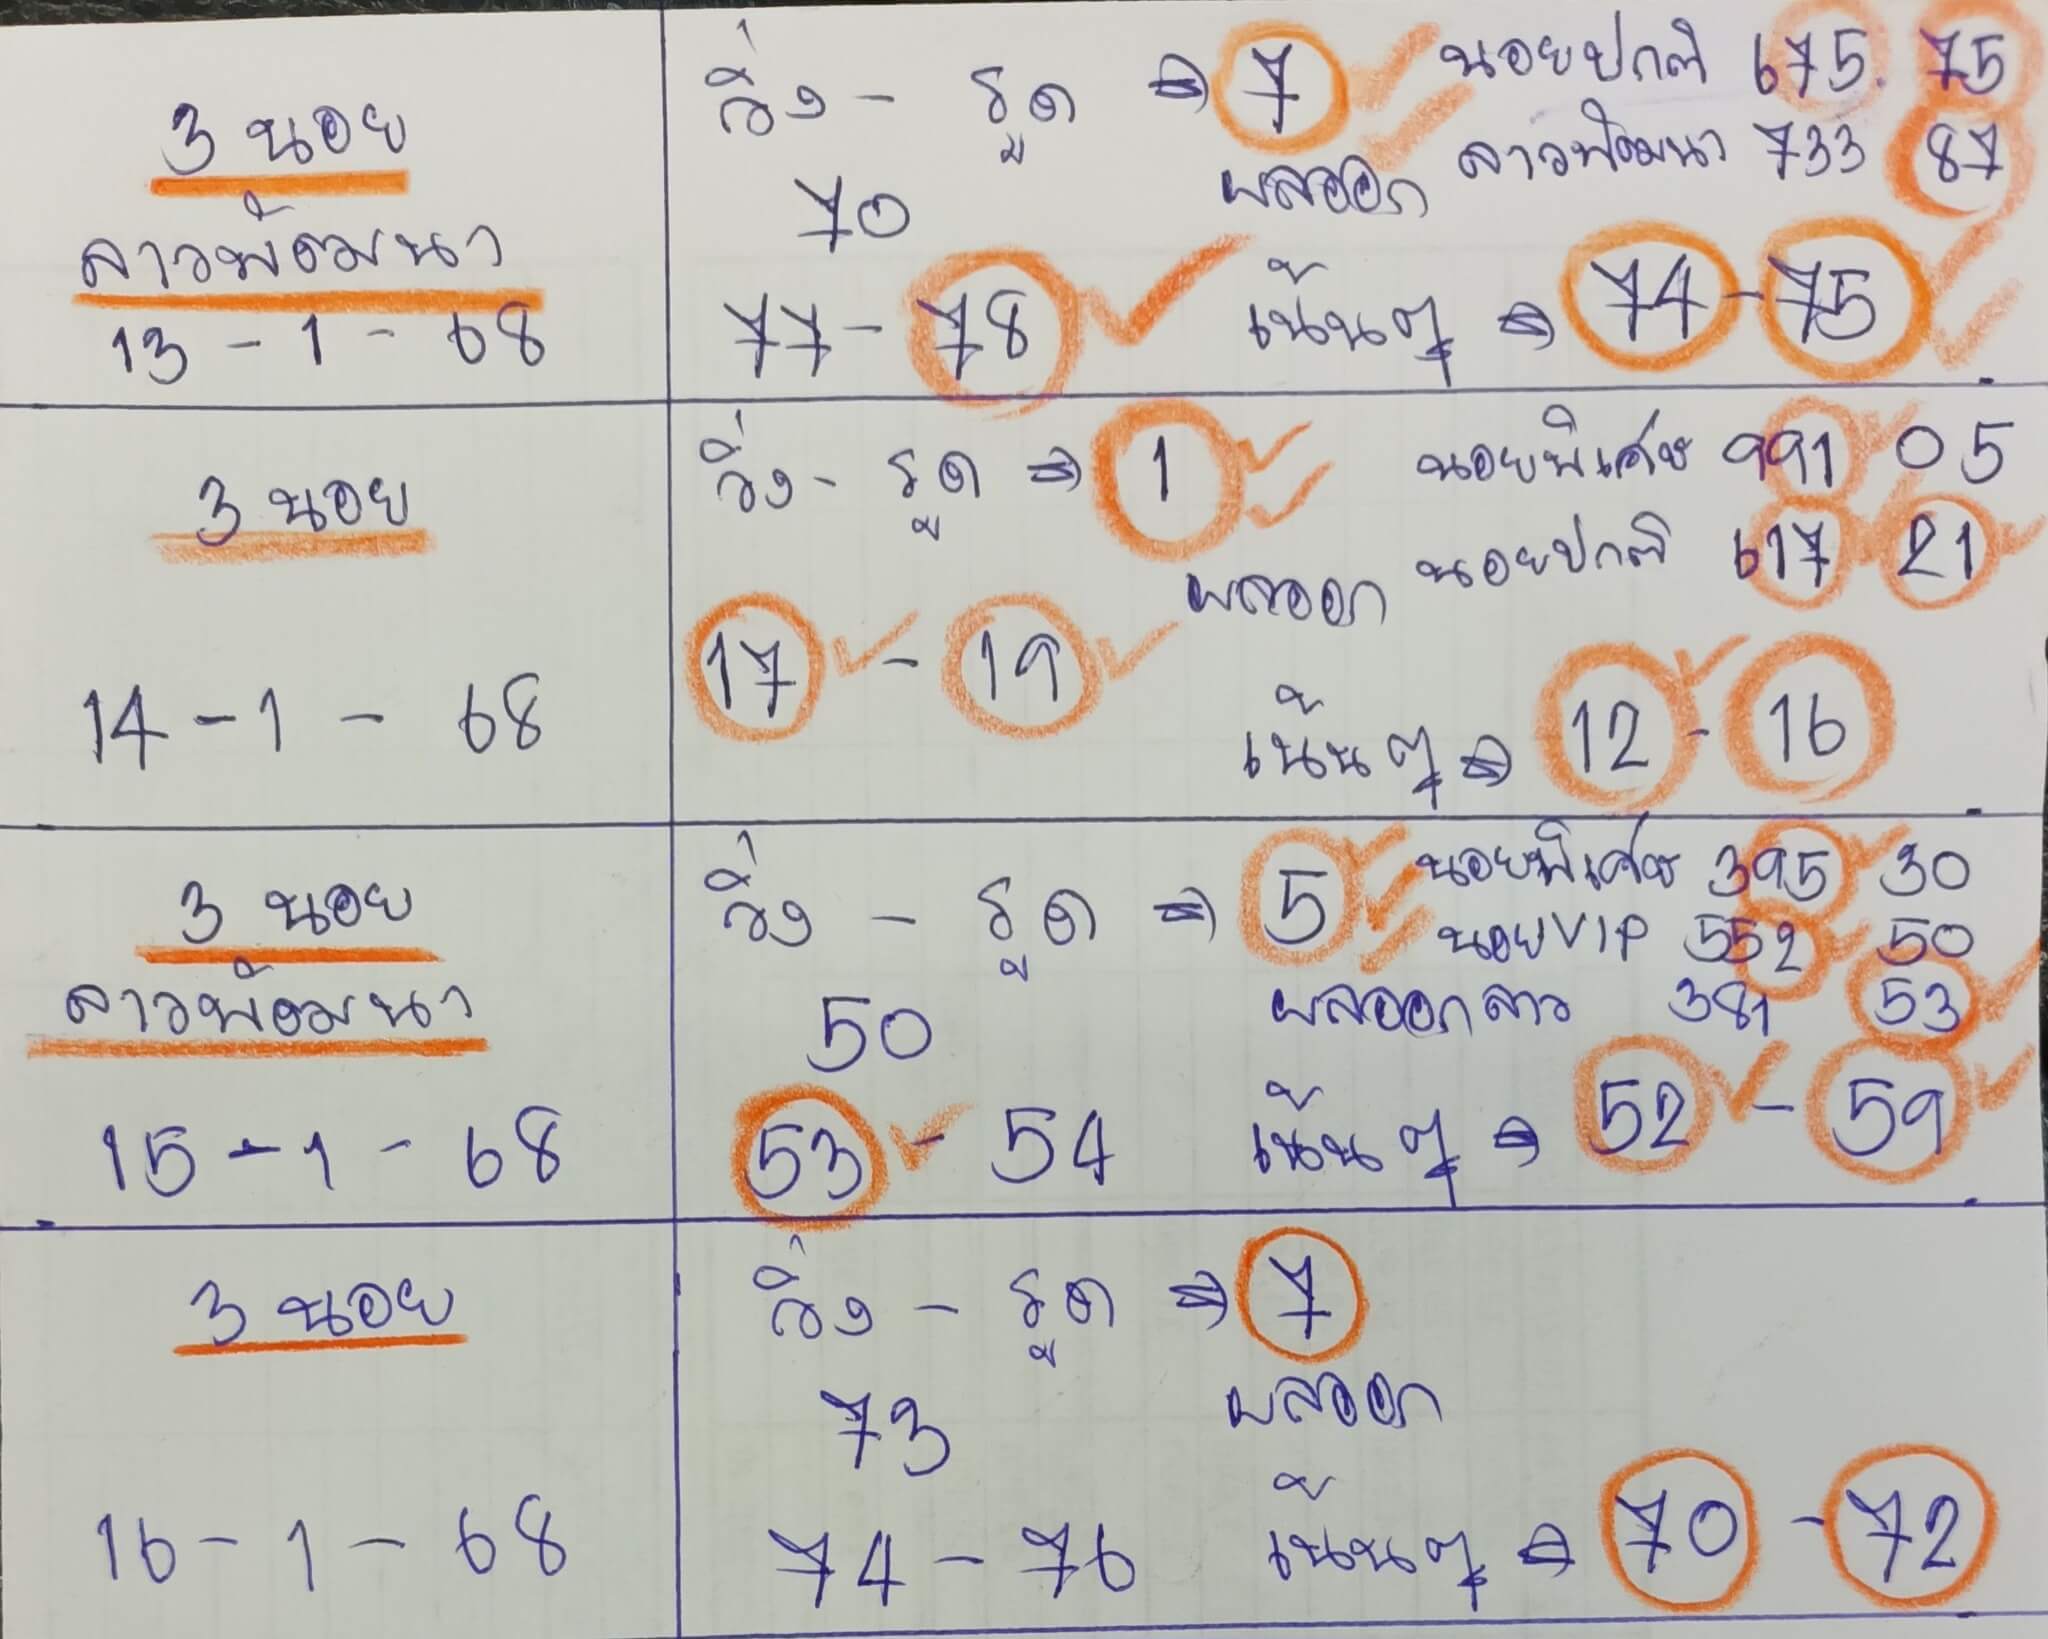 3 นอย
ลาวพัฒนา
13 - 1 - 68
วิ่ง - รูด ⇒ 7 นอยปกติ 675. 75
ผลออก ลาวพัฒนา 733 87
70
77 - 78 เน้นๆ ⇒ 74 - 75
3 นอย
14 - 1 - 68
วิ่ง - รูด ⇒ 1 นอยพิเศษ 991 05
ผลออก นอยปกติ 617 21
17 - 19
เน้นๆ ⇒ 12 - 16
3 นอย
ลาวพัฒนา
15 - 1 - 68
วิ่ง - รูด ⇒ 5 นอยพิเศษ 395 30
นอย VIP 552 50
50 ผลออก ลาว 381 53
53 - 54 เน้นๆ ⇒ 52 - 59
3 นอย
16 - 1 - 68
วิ่ง - รูด ⇒ 7
73 ผลออก
74 - 76 เน้นๆ ⇒ 70 - 72